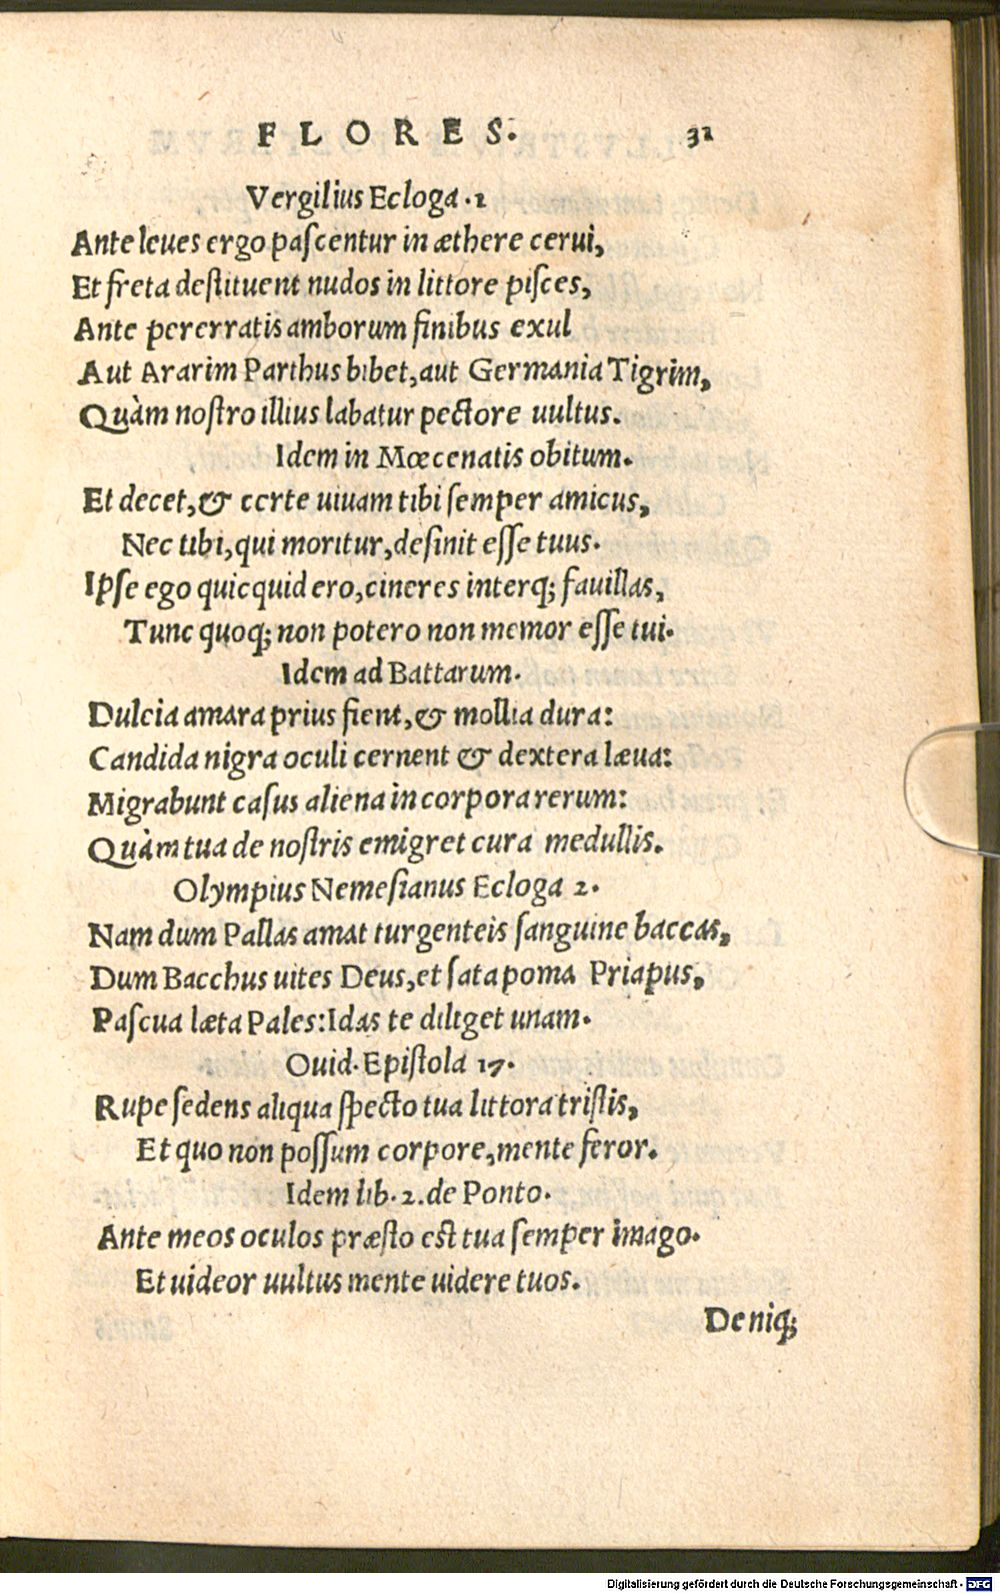 FLORES. 31
Vergilius Ecloga .1
Ante leues ergo pascentur in æthere cerui,
Et freta destituent nudos in littore pisces,
Ante pererratis amborum finibus exul
Aut Ararim Parthus bibet, aut Germania Tigrim,
Quàm nostro illius labatur pectore uultus.
Idem in Mœcenatis obitum.
Et decet, & certe uiuam tibi semper amicus,
Nec tibi, qui moritur, desinit esse tuus.
Ipse ego quicquid ero, cineres interq; fauillas,
Tunc quoq; non potero non memor esse tui.
Idem ad Battarum.
Dulcia amara prius fient, & mollia dura:
Candida nigra oculi cernent & dextera læua:
Migrabunt casus aliena in corpora rerum:
Quàm tua de nostris emigret cura medullis.
Olympius Nemesianus Ecloga 2.
Nam dum Pallas amat turgenteis sanguine baccas,
Dum Bacchus uites Deus, et sata poma Priapus,
Pascua læta Pales: Idas te diliget unam.
Ouid. Epistola 17.
Rupe sedens aliqua specto tua littora tristis,
Et quo non possum corpore, mente feror.
Idem lib. 2. de Ponto.
Ante meos oculos præsto est tua semper imago.
Et uideor uultus mente uidere tuos.
Deniq;
Digitalisierung gefördert durch die Deutsche Forschungsgemeinschaft - DFG